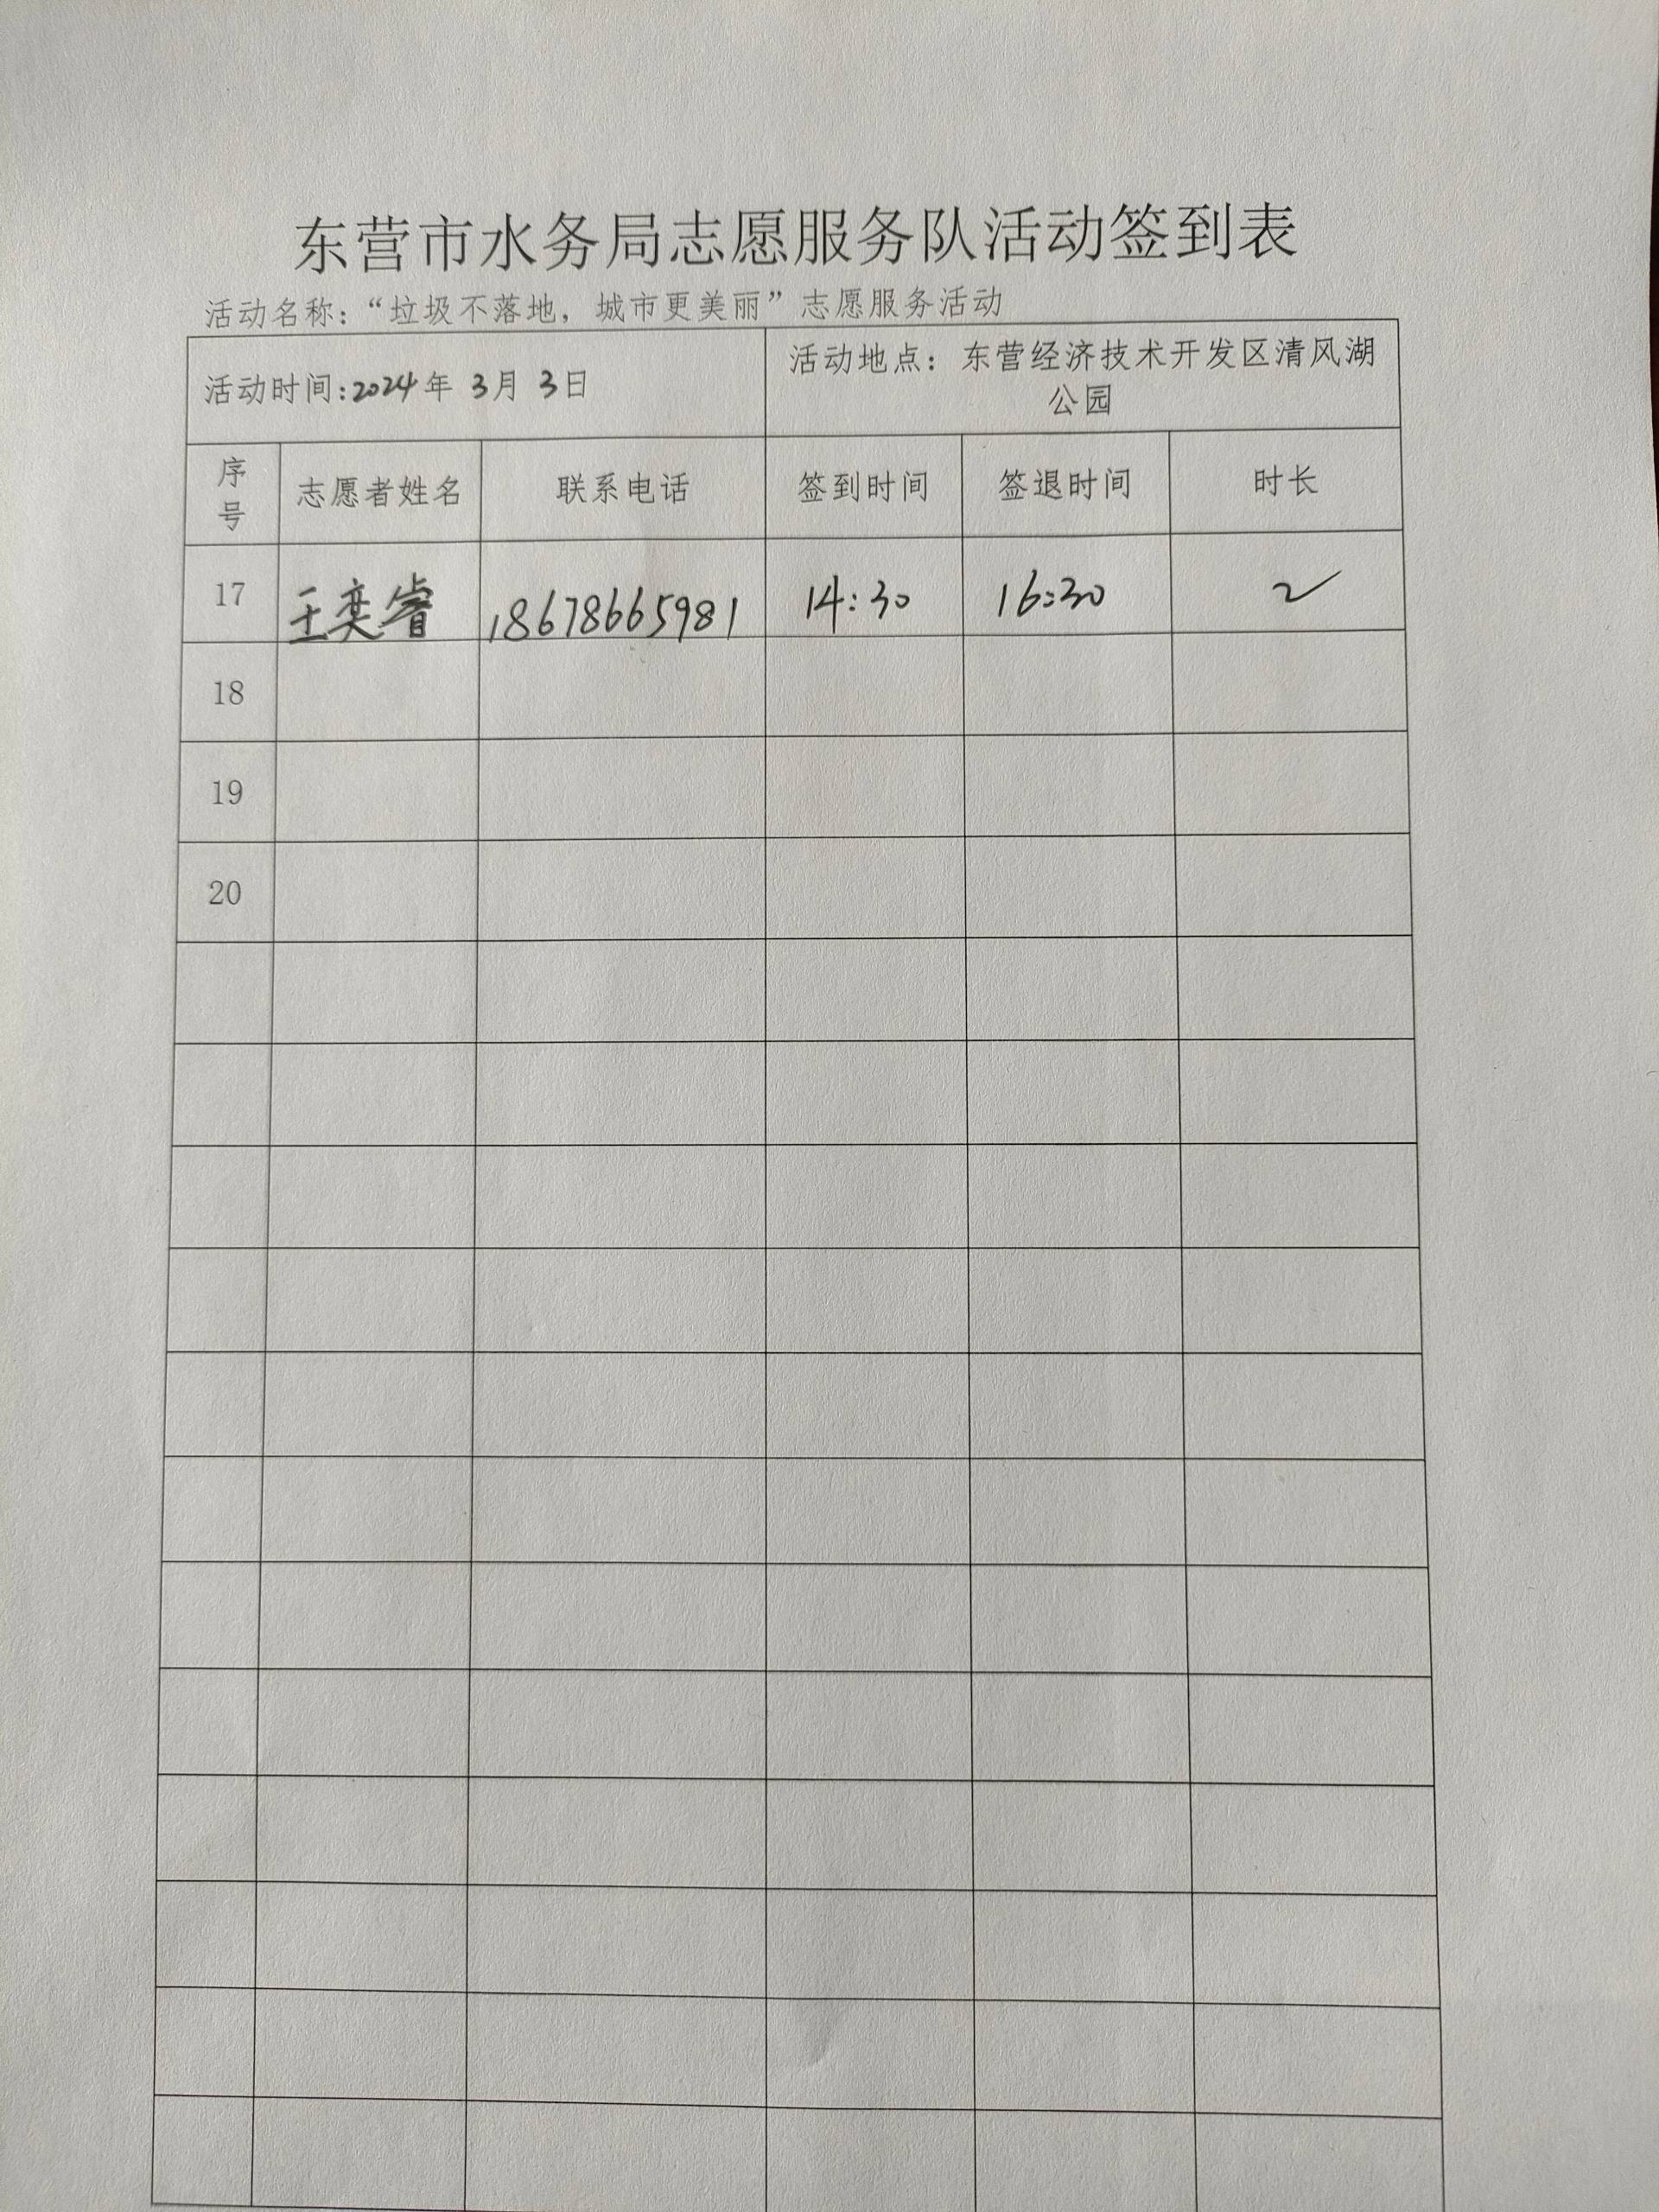 东营市水务局志愿服务队活动签到表
活动名称：“垃圾不落地，城市更美丽”志愿服务活动
活动时间：2024年 3月 3日
活动地点：东营经济技术开发区清风湖
公园
序号 志愿者姓名 联系电话 签到时间 签退时间 时长
17 王奕睿 18678665981 14:30 16:30 2
18
19
20